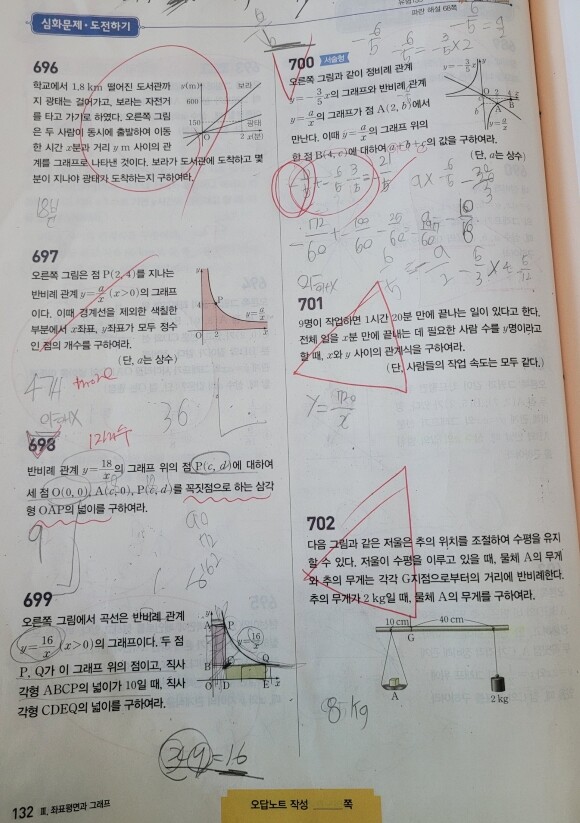 심화문제·도전하기
파란 해설 66쪽
696
학교에서 1.8 km 떨어진 도서관까
지 광태는 걸어가고, 보라는 자전거
를 타고 가기로 하였다. 오른쪽 그림
은 두 사람이 동시에 출발하여 이동
한 시간 x분과 거리 y m 사이의 관
계를 그래프로 나타낸 것이다. 보라가 도서관에 도착하고 몇
분이 지나야 광태가 도착하는지 구하여라.
y(m)
보라
600
150
광태
O
2 x(분)
18분
697
오른쪽 그림은 점 P(2, 4)를 지나는
반비례 관계 y=a/x (x>0)의 그래프
이다. 이때 경계선을 제외한 색칠한
부분에서 x좌표, y좌표가 모두 정수
인 점의 개수를 구하여라.
(단, a는 상수)
y
4
P
y=a/x
O
2
x
36
698
반비례 관계 y=18/x의 그래프 위의 점 P(c, d)에 대하여
세 점 O(0, 0), A(c, 0), P(c, d)를 꼭짓점으로 하는 삼각
형 OAP의 넓이를 구하여라.
9
699
오른쪽 그림에서 곡선은 반비례 관계
y=16/x (x>0)의 그래프이다. 두 점
P, Q가 이 그래프 위의 점이고, 직사
각형 ABCP의 넓이가 10일 때, 직사
각형 CDEQ의 넓이를 구하여라.
y
A
P
y=16/x
B
C
Q
O
D
E
x
700
서술형
오른쪽 그림과 같이 정비례 관계
y=-3/5x의 그래프와 반비례 관계
y=a/x의 그래프가 점 A(2, b)에서
만난다. 이때 y=a/x의 그래프 위의
한 점 B(4, c)에 대하여 a+b+c의 값을 구하여라.
(단, a는 상수)
y=-3/5x
y
O
2
4
x
B
A
y=a/x
701
9명이 작업하면 1시간 20분 만에 끝나는 일이 있다고 한다.
전체 일을 x분 만에 끝내는 데 필요한 사람 수를 y명이라고
할 때, x와 y 사이의 관계식을 구하여라.
(단, 사람들의 작업 속도는 모두 같다.)
y=720/x
702
다음 그림과 같은 저울은 추의 위치를 조절하여 수평을 유지
할 수 있다. 저울이 수평을 이루고 있을 때, 물체 A의 무게
와 추의 무게는 각각 G지점으로부터의 거리에 반비례한다.
추의 무게가 2 kg일 때, 물체 A의 무게를 구하여라.
10 cm
40 cm
G
A
2 kg
8 kg
132 Ⅲ. 좌표평면과 그래프
오답노트 작성 ____쪽